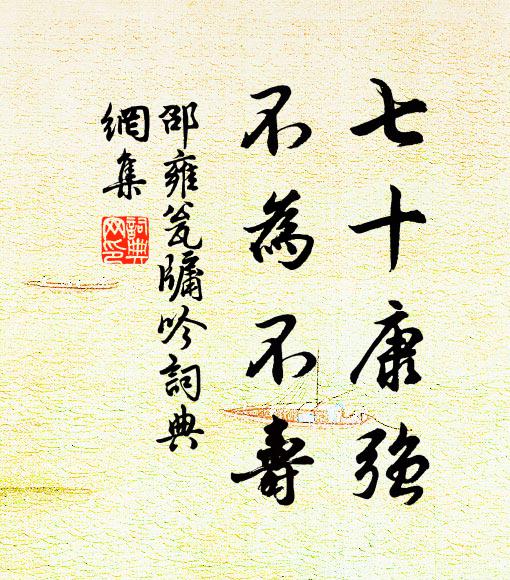 七十康強
不為不壽
邵雍瓮牖吟詞典
網集
詞典
网印